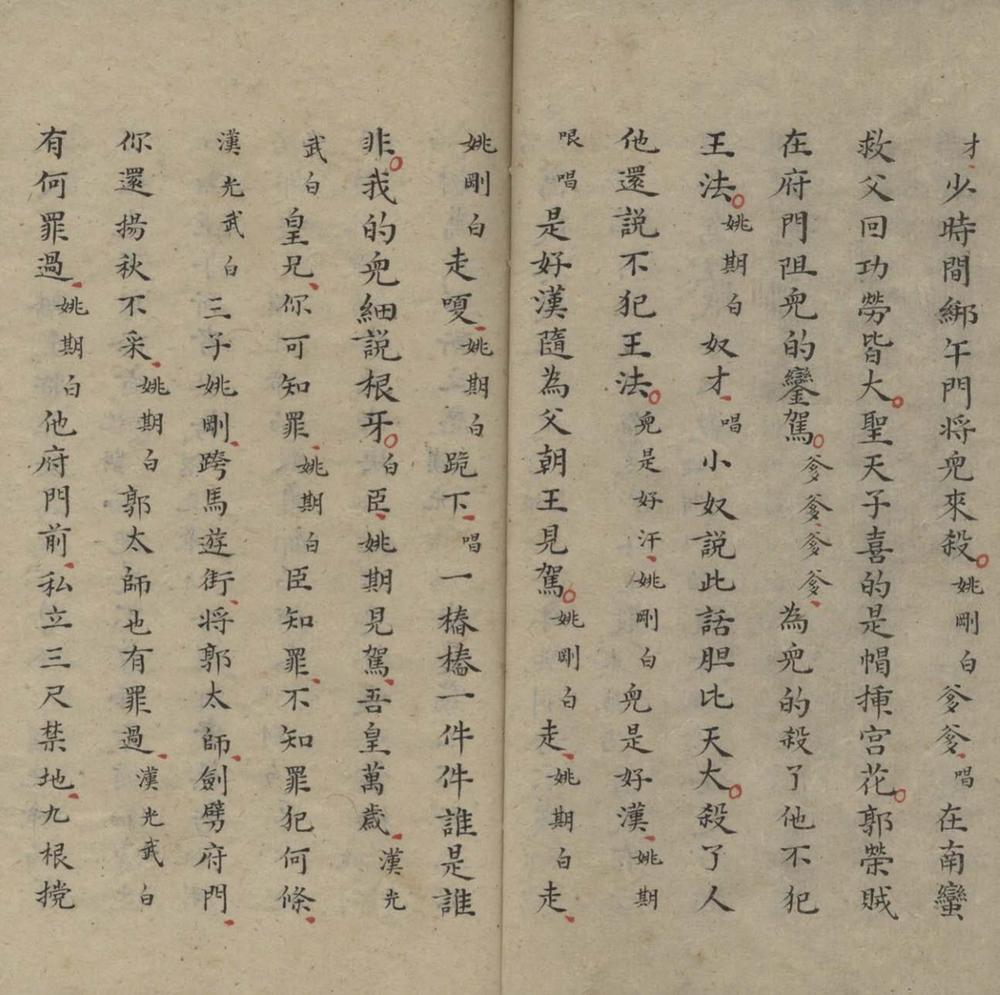 才、少時間綁午門将兒來殺。姚剛白爹爹、唱在南蠻
救父回功勞皆大。聖天子喜的是帽揷宮花。郭榮賊
在府門阻兒的鑾駕。爹爹爹爹、為兒的殺了他不犯
王法。姚期白奴才、唱小奴説此話胆比天大。殺了人
他還説不犯王法。兒是好汗、姚剛白兒是好漢、姚期
哏唱是好漢隨為父朝王見駕。姚剛白走、姚期白走、
姚剛白走嗄、姚期白跪下、唱一樁樁一件件誰是誰
非。我的兒細説根牙。白臣、姚期見駕、吾皇萬歲、漢光
武白皇兄、你可知罪、姚期白臣知罪、不知罪犯何條、
漢光武白三子姚剛、跨馬遊街、将郭太師、劍劈府門、
你還揚秋不采、姚期白郭太師也有罪過、漢光武白
有何罪過、姚期白他府門前、私立三尺禁地、九根㨪